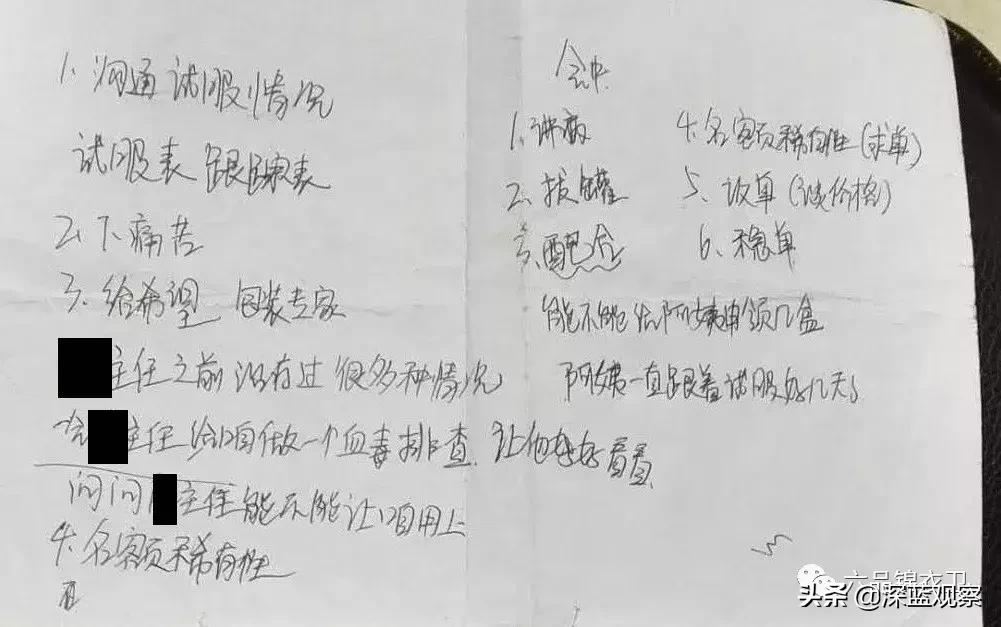 1、沟通试服情况
试服表 跟踪表
2、下痛苦
3、给希望 包装专家
主任之前治有过很多种情况
让主任给咱做一个血毒排查,让他好好看看
问问 主任能不能让咱用上
4、名额稀有性
会中
1、讲病
2、拔罐
3、配合
4、名额稀有性(求单)
5、放单(谈价格)
6、稳单
能不能给阿姨申领几盒
阿姨一直跟着试服好几天了
六品锦衣卫
头条 @深蓝观察